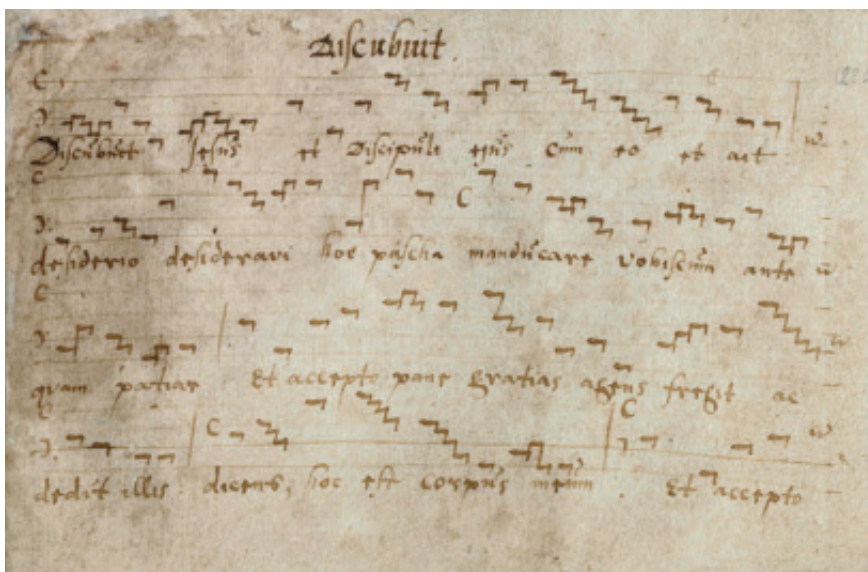 Discubuit.
Discubuit Jesus et Discipuli ejus cum eo et ait
desiderio desideravi hoc pascha manducare vobiscum ante
quam patiar Et accepto pane gratias agens fregit ac
dedit illis dicens, hoc est corpus meum. Et accepto